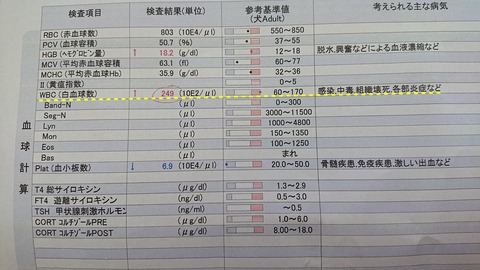 検査項目 検査結果(単位) 参考基準値 (犬Adult) 考えられる主な病気
RBC (赤血球数) 803 (10E4/μl) 550~850
PCV (血球容積) 50.7 (%) 37~55
HGB (ヘモグロビン量) ↑ 18.2 (g/dl) 12~18 脱水,興奮などによる血液濃縮など
MCV (平均赤血球容積) 63.1 (fl) 60~77
MCHC (平均赤血球Hb) 35.9 (g/dl) 32~36
II (黄疸指数) 0~5
WBC (白血球数) ↑ 249 (10E2/μl) 60~170 感染,中毒,組織壊死,各部炎症など
Band-N (μl) 0~300
Seg-N (μl) 3000~11500
Lyn (μl) 1000~4800
Mon (μl) 150~1350
Eos (μl) 100~1250
Bas (μl) まれ
Plat (血小板数) ↓ 6.9 (10E4/μl) 20.0~50.0 骨髄疾患,免疫疾患,激しい出血など
T4 総サイロキシン (μg/dl) 1.3~2.9
FT4 遊離サイロキシン (ng/dl) 0.5~3.0
TSH 甲状腺刺激ホルモン (ng/ml) ~0.5
CORT コルチゾールPRE (μg/dl) 1.0~6.0
CORT コルチゾールPOST (μg/dl) 8.00~18.0
血球計算